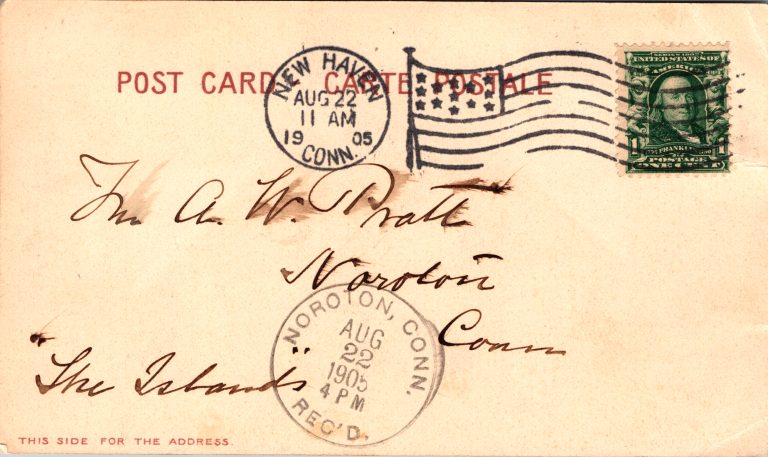 POST CARD CARTE POSTALE
NEW HAVEN
AUG 22
11 AM
1905
CONN.
SERIES 1902
UNITED STATES OF
AMERICA
FRANKLIN
POSTAGE
1 ONE CENT 1
A. W. Pratt
Noroton
Conn
"The Islands"
NOROTON, CONN.
AUG
22
1905
4 PM
REC'D.
THIS SIDE FOR THE ADDRESS.